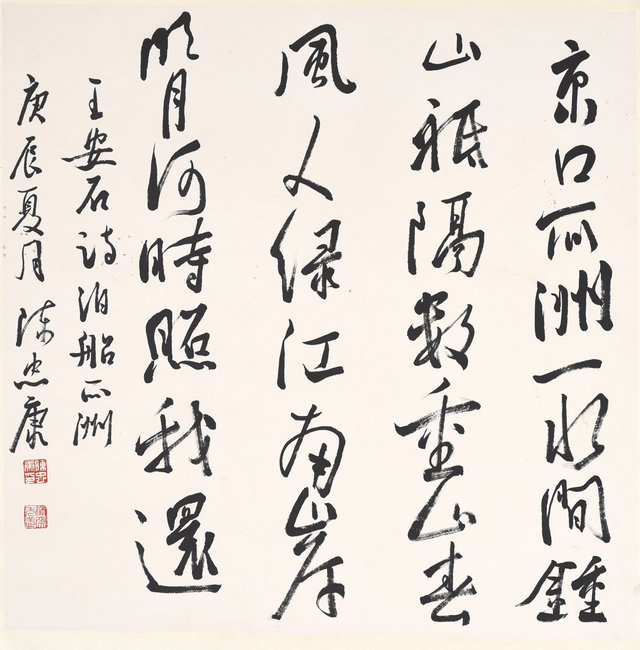 京口瓜洲一水間鍾
山祗隔數重山春
風又綠江南岸
明月何時照我還
王安石詩泊船瓜洲
庚辰夏月陳忠康